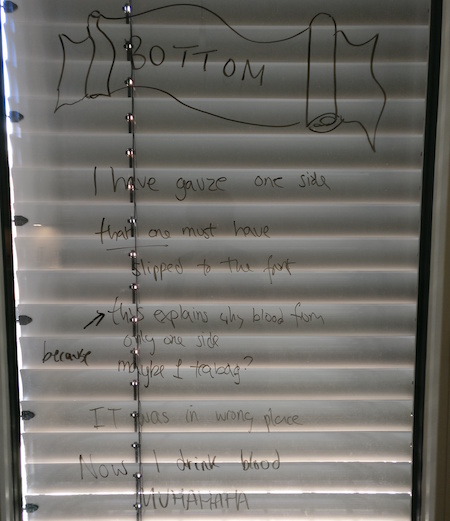 BOTTOM
I have gauze one side
that one must have
slipped to the front
this explains why blood from
only one side
because
maybe I teabag?
IT was in wrong place
Now I drink blood
MUHAHAHA